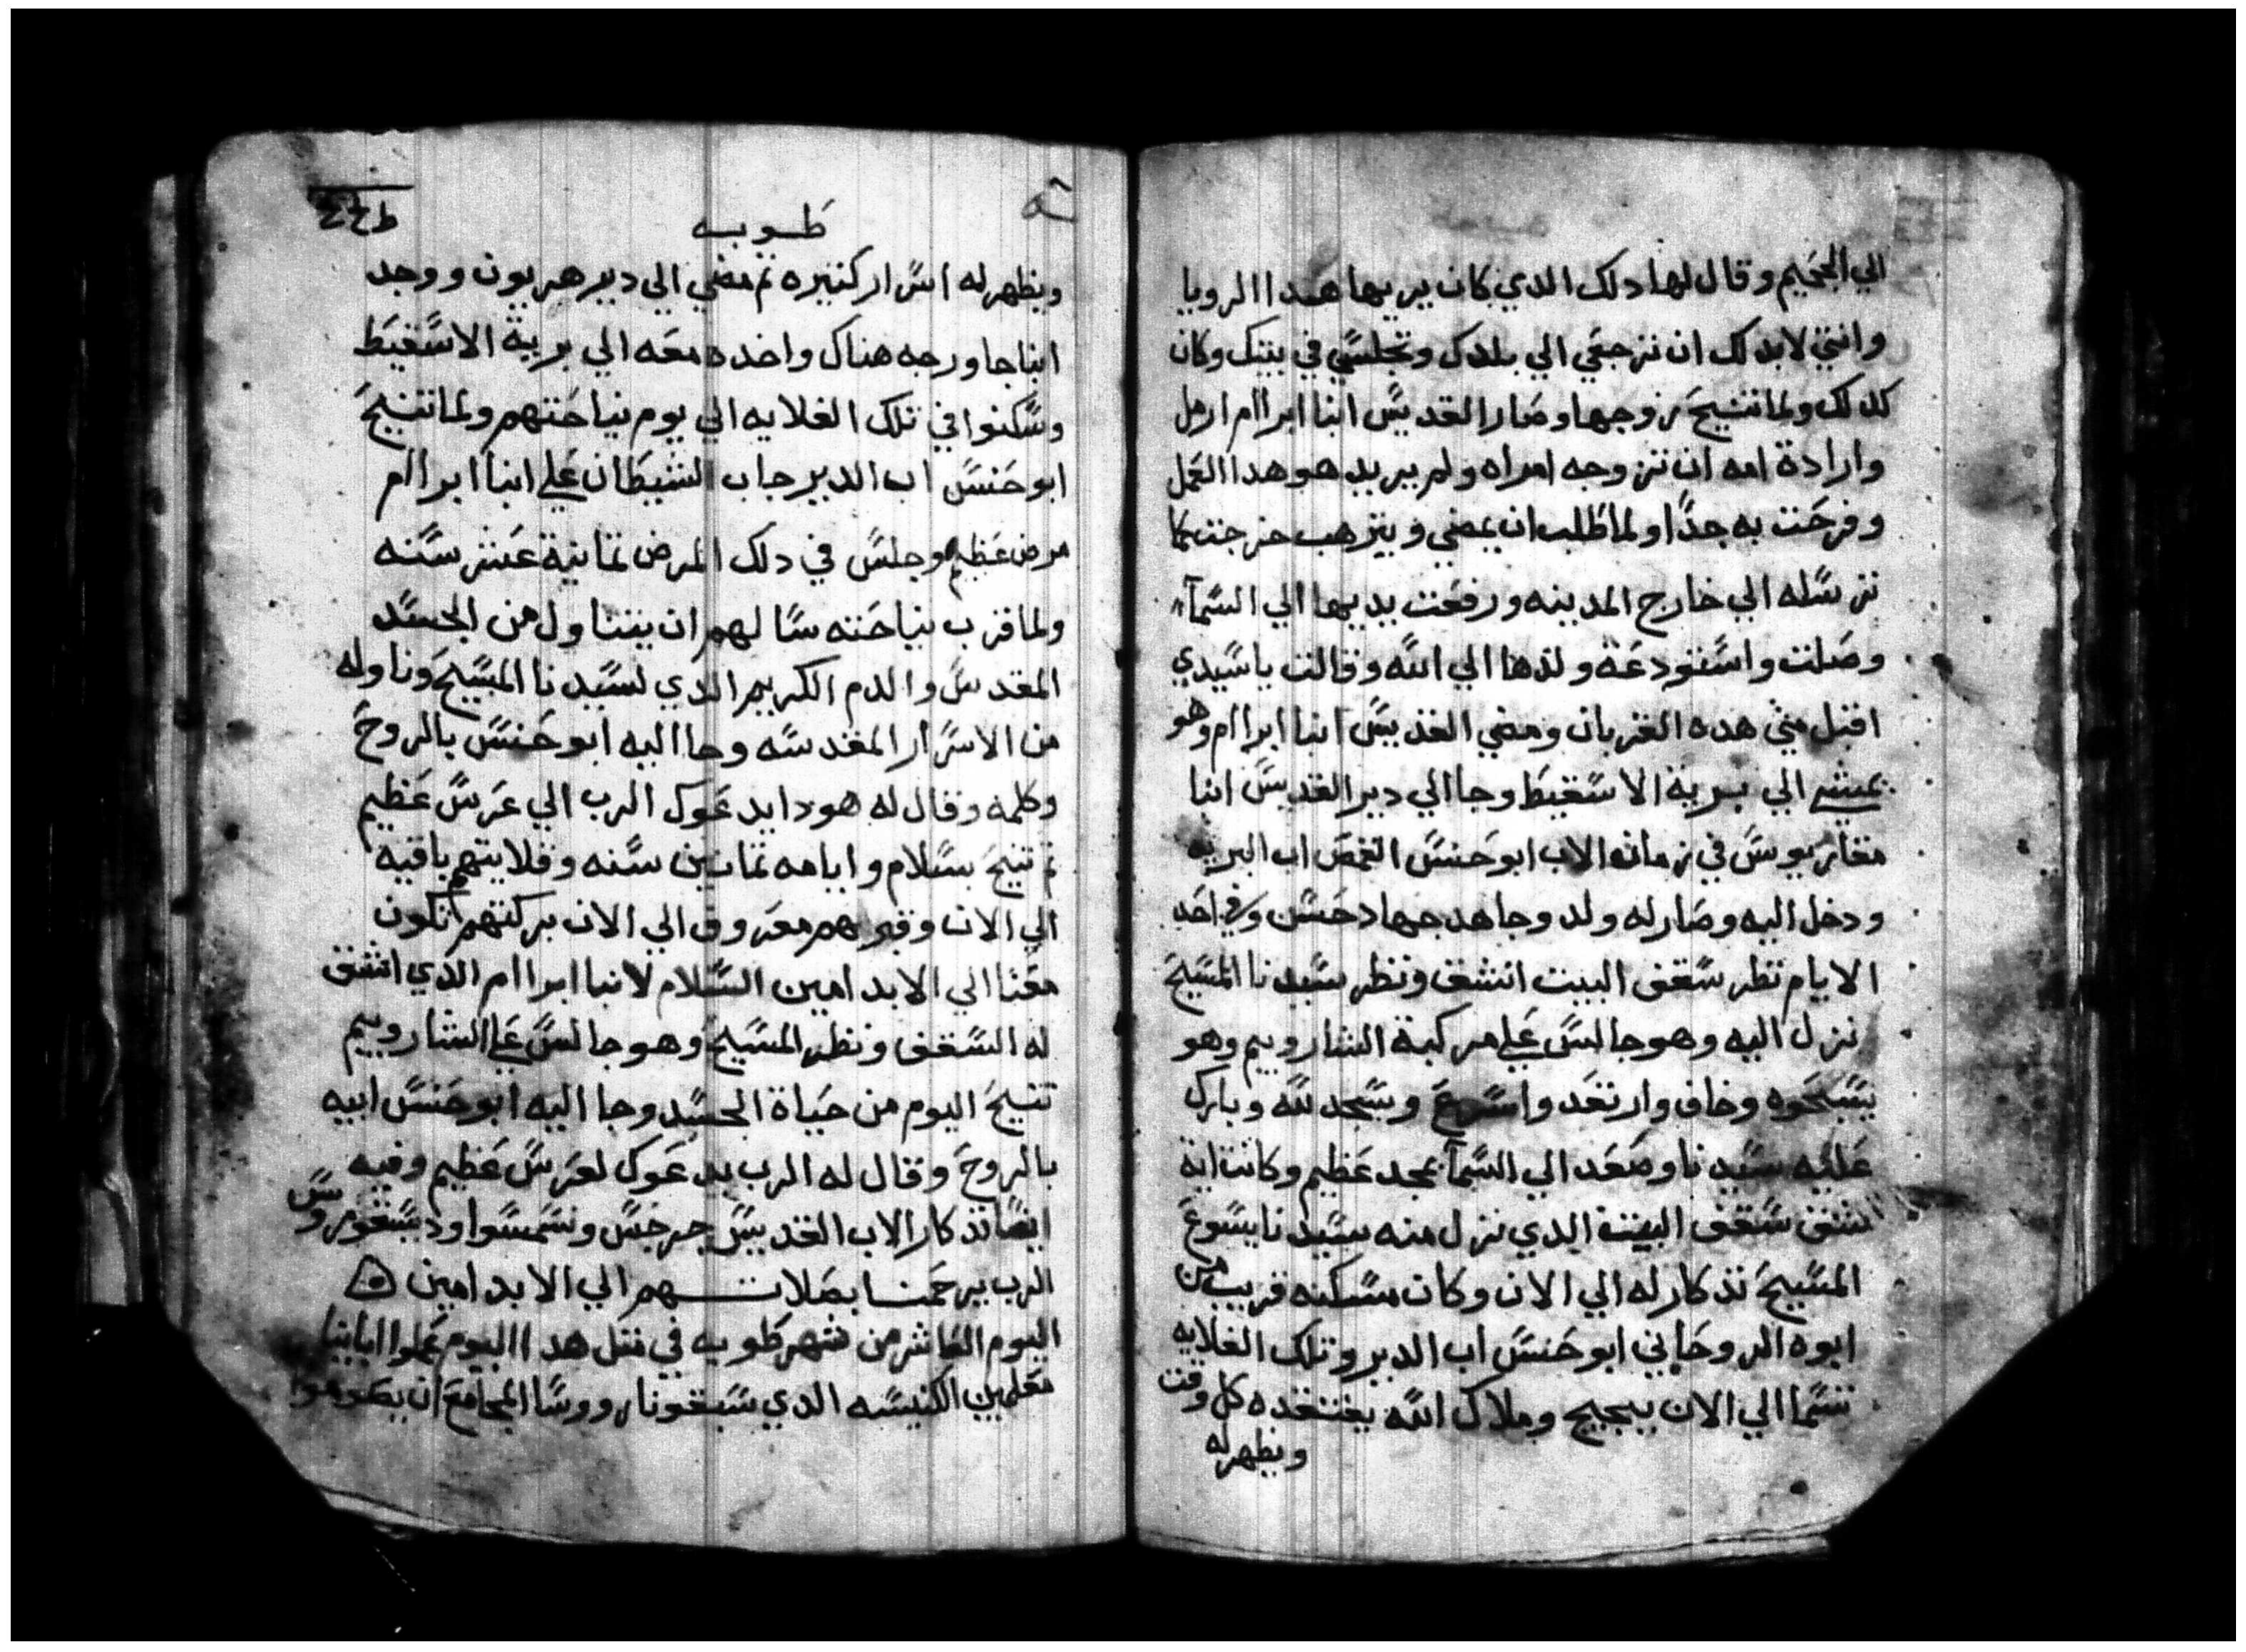 الي الجحيم وقال لها دلك الدي كان يريها هدا الرويا
وانتي لابد لك ان ترجعي الي بلدك وتجلسي في بيتك وكان
كدلك ولما تنيح زوجها وصار القديس انبا ابراام ارمل
وارادة امه ان تزوجه امراه ولم يريد هو هدا العمل
وفرحت به جدا ولما طلب ان يمضي ويترهب خرجت
ترسله الي خارج المدينه ورفعت يديها الي السمآ
وصلت واستودعة ولدها الي الله وقالت ياسيدي
اقبل مني هده القربان ومضي القديس انبا ابراام وهو
يمشي الي برية الاسقيط وجا الي دير القديس انبا
مقاريوس في زمان الاب ابو حنس القمص اب البريه
ودخل اليه وصار له ولد وجاهد جهاد حسن وفي احد
الايام نظر سقف البيت انشق ونظر سيدنا المسيح
نزل اليه وهو جالس علي مركبة الشاروبيم وهو
يسبحوه وخاف وارتعد واسرع وسجد لله وبارك
عليه سيدنا وصعد الي السمآ بمجد عظيم وكانت اية
شق سقف البيت الدي نزل منه سيدنا يسوع
المسيح تدكار له الي الان وكان مسكنه قريب من
ابوه الروحاني ابو حنس اب الدير وتلك القلايه
تسما الي الان ببجيج وملاك الله يفتقده كل وقت
ويظهر له
طوبه
ويظهر له اسرار كتيره تم مضي الي دير هربون ووجد
انبا جاورجه هناك واخده معه الي برية الاسقيط
وسكنوا في تلك القلايه الي يوم نياحتهم ولما تنيح
ابو حنس اب الدير جاب الشيطان علي انبا ابراام
مرض عظيم وجلس في دلك المرض تمانية عشر سنه
ولما قرب نياحته سالهم ان يتناول من الجسد
المقدس والدم الكريم الدي لسيدنا المسيح وناوله
من الاسرار المقدسه وجا اليه ابو حنس بالروح
وكلمه وقال له هودا يدعوك الرب الي عرس عظيم
تم تنيح بسلام وايامه تمانين سنه وقلايتهم باقيه
الي الان وقبرهم معروف الي الان بركتهم تكون
معنا الي الابد امين السلام لانبا ابراام الدي انشق
له السقف ونظر المسيح وهو جالس علي الشاروبيم
تنيح اليوم من حياة الجسد وجا اليه ابو حنس ابيه
بالروح وقال له الرب يدعوك لعرس عظيم وفيه
ايضا تدكار الاب القديس جرجس
الرب يرحمنا بصلاتهم الي الابد امين
اليوم العاشر من شهر طوبه في متل هدا اليوم عملوا ابايينا
معلمين الكنيسه الدي سبقونا روسا المجامع ان يصوموا